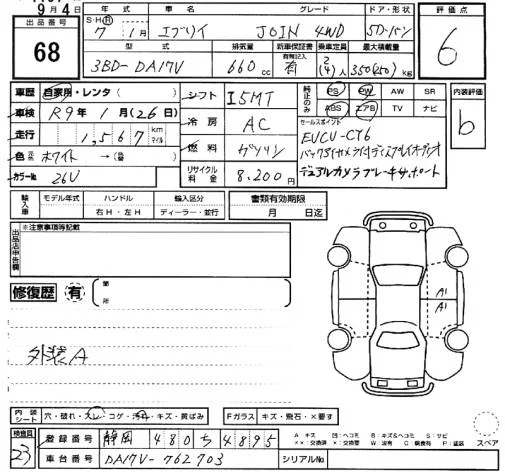 9月4日
出品番号
68
年式 車名 グレード ドア・形状
S・H・R 7年 1月 エブリイ JOIN 4WD 5Dバン
型式 排気量 新車保証書 乗車定員 最大積載量
3BD-DA17V 660cc 有無記入 有 2(4)人 350(250)kg
評価点
6
車歴 自家用・レンタ( )
車検 R9年1月(26日)
走行 1,567 km マイル
色 元色 ホワイト →( 色)
カラーNo 26V
シフト I5MT
冷房 AC
燃料 ガソリン
リサイクル料金 8,200円
純正のみ
PS PW AW SR
ABS エアB TV ナビ
セールスポイント
EVCU-CY6
バックアイカメラ付ディスプレイオーディオ
デュアルカメラブレーキサポート
内装評価
b
輸入車 モデル年式 ハンドル 輸入区分
右H・左H ディーラー・並行
書類有効期限
月 日迄
出品店申告欄
※注意事項等記載
修復歴 有 箇所
外装A
A1
A1
内装シート 穴・破れ・スレ・コゲ・汚れ・キズ・黄ばみ
Fガラス キズ・飛石・×要す
検査員
23
登録番号 静岡 480 ち 4895
車台番号 DA17V-762703
シリアルNo.
A キズ U ヘコミ B キズ&ヘコミ S サビ
×× 交換済 × 交換要 W 波有 C 腐食有 P 塗装
スペア